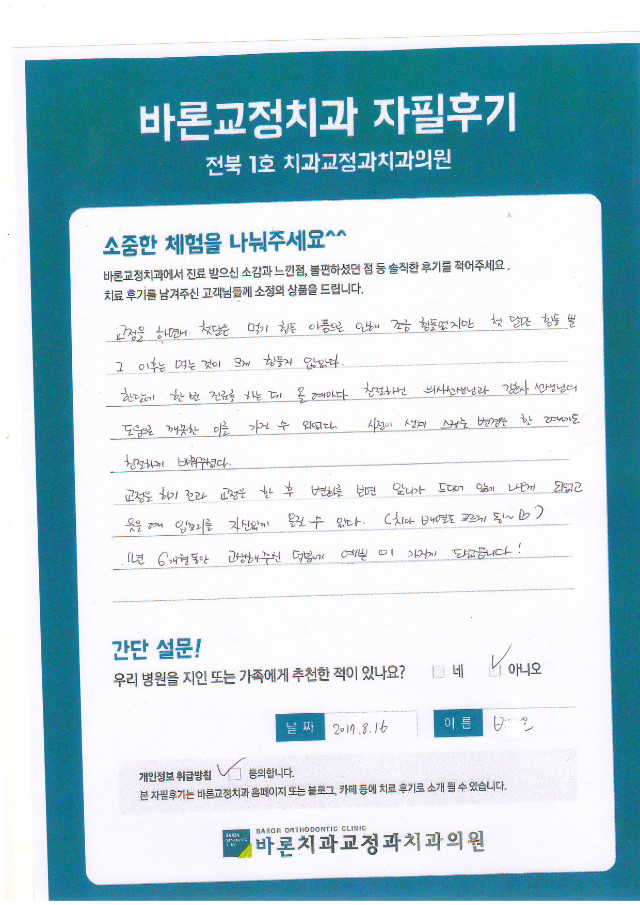 바른교정치과 자필후기
전북 1호 치과교정과치과의원
소중한 체험을 나눠주세요^^
바른교정치과에서 진료 받으신 소감과 느낀점, 불편하셨던 점 등 솔직한 후기를 적어주세요.
치료 후기를 남겨주신 고객님들께 소정의 상품을 드립니다.
교정을 하면서 첫달은 먹기 힘든 아픔으로 인해 조금 힘들었지만 첫 달만 힘들 뿐
그 이후는 먹는 것이 크게 힘들지 않았다.
한달에 한 번 진료를 하는데 올 때마다 친절하신 의사선생님과 간호사 선생님의
도움으로 깨끗한 이를 가질 수 있었다. 사정이 생겨 변경을 한 때에도
친절하게 바꿔주셨다.
교정을 하기 전과 교정을 한 후 변화를 보면 앞니가 드디어 되었고
웃을 때 입꼬리를 자신있게 올릴 수 있다. (치아 배열도 고르게 됨~)
1년 6개월동안 고생해주신 덕분에 예쁜 이 가지게 되었습니다!
간단 설문!
우리 병원을 지인 또는 가족에게 추천한 적이 있나요? 네 아니오
날 짜 2017.8.16 이 름
개인정보 취급방침 동의합니다.
본 자필후기는 바른교정치과 홈페이지 또는 블로그, 카페 등에 치료 후기로 소개 될 수 있습니다.
BARON ORTHODONTIC CLINIC
바른치과교정과치과의원